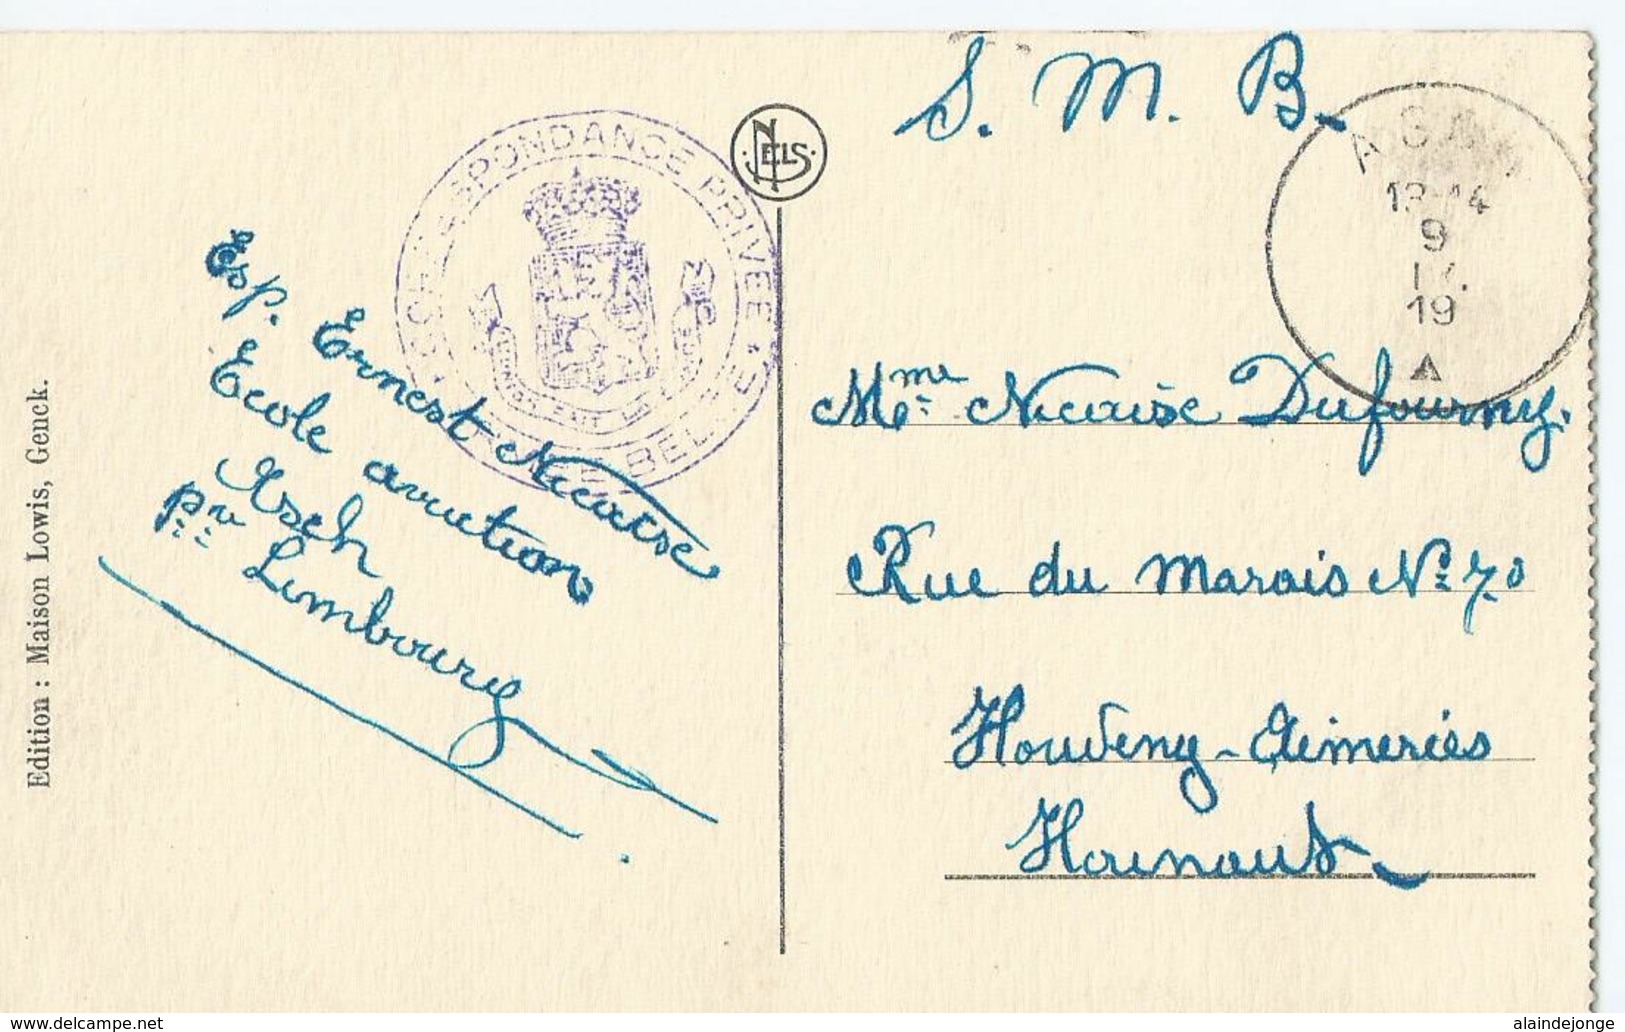 S. M. B.
NELS
CORRESPONDANCE PRIVEE
Esp. Ernest Nicaise
Ecole aviation
Asch
Limbourg
13-14
9
IX.
19
Mme Nicaise Dufourny.
Rue du Marais No 70
Houdeng-Aimeries
Hainaut
Edition : Maison Lowis, Genck.
https://www.delcampe.net
alaindejonge